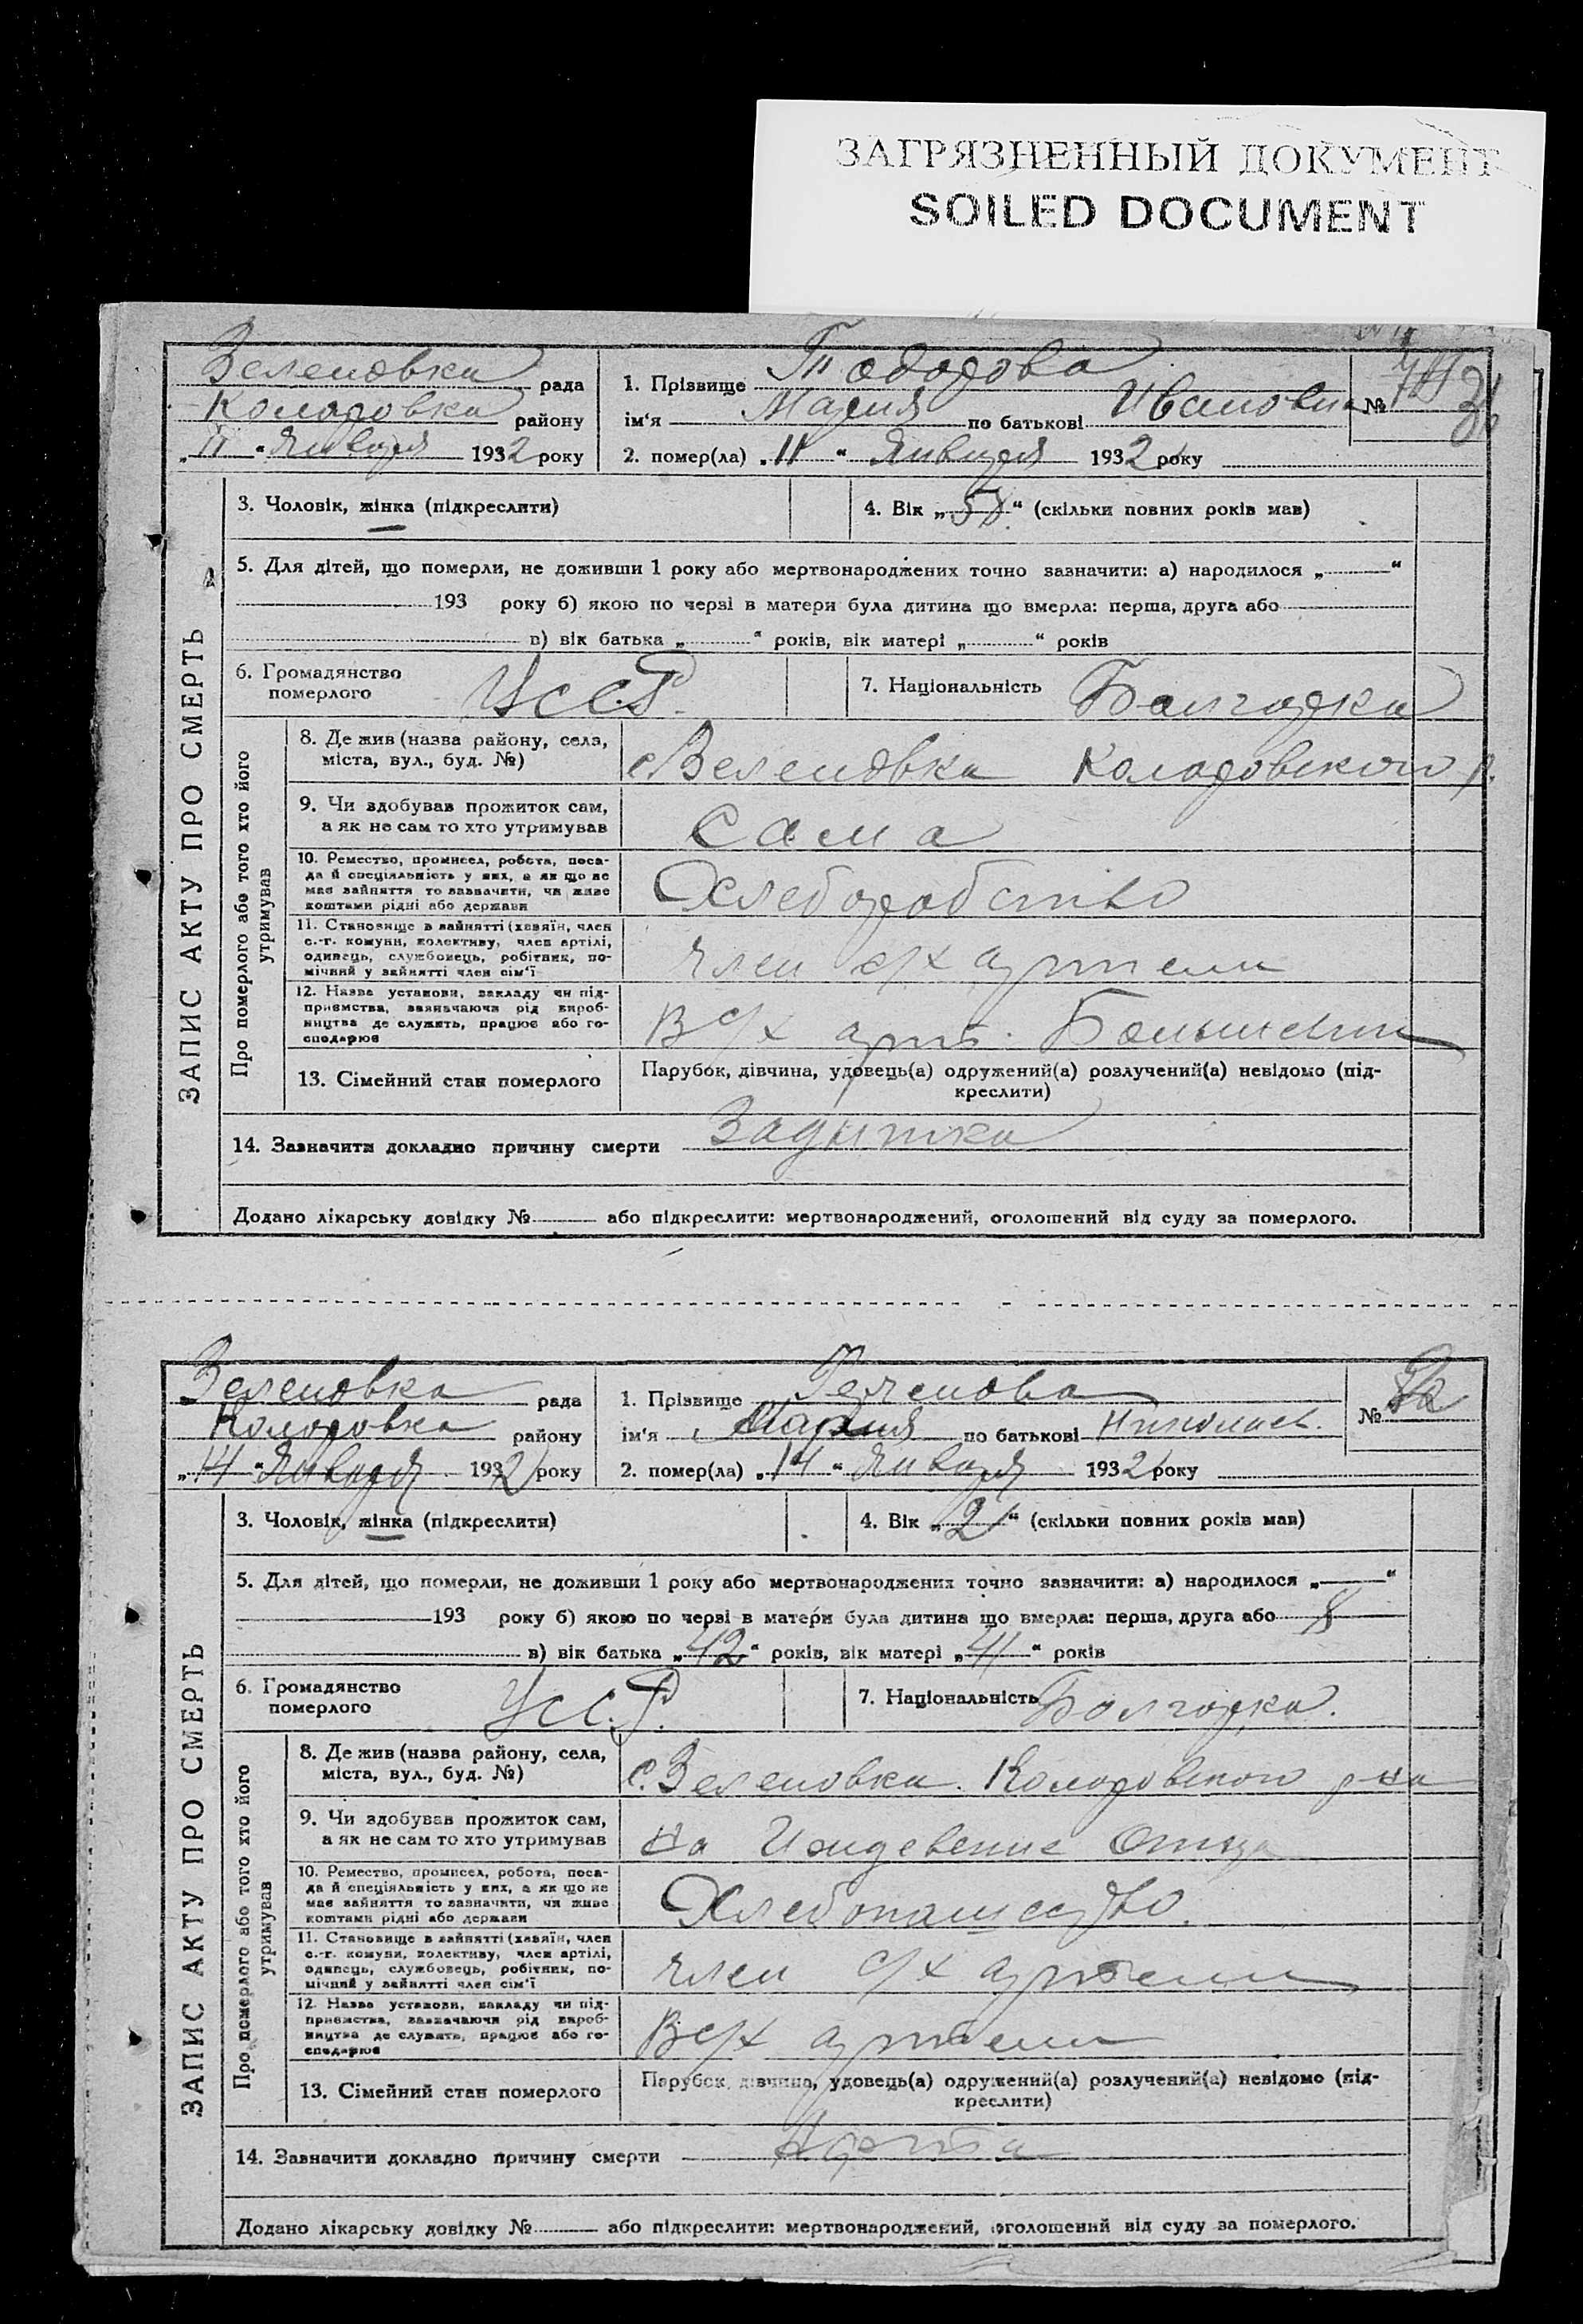 ЗАГРЯЗНЕННЫЙ ДОКУМЕНТ
SOILED DOCUMENT
ЗАПИС АКТУ ПРО СМЕРТЬ
Зеленовка рада
Коларовка району
„11“ Января 1932 року
1. Прізвище Тодорова
ім'я Мария по батькові Ивановна №
2. помер(ла) „11“ Января 1932 року
3. Чоловік, жінка (підкреслити)
4. Вік „58“ (скільки повних років мав)
5. Для дітей, що померли, не доживши 1 року або мертвонароджених точно зазначити: а) народилося „ “
193 року б) якою по черзі в матери була дитина що вмерла: перша, друга або
в) вік батька „ “ років, вік матері „ “ років
6. Громадянство
померлого УССР.
7. Національність Болгарка
Про померлого або того хто його
утримував
8. Де жив (назва району, села,
міста, вул., буд. №)
с Зеленовка Коларовского р.
9. Чи здобував прожиток сам,
а як не сам то хто утримував
Сама
10. Ремество, промисел, робота, поса-
да й спеціяльність у них, а як що не
має зайняття то зазначити, чи живе
коштами рідні або держави
Хлеборобство
11. Становище в зайнятті (хазяїн, член
с.-г. комуни, колективу, член артілі,
одинець, службовець, робітник, по-
мічний у зайнятті член сім'ї
член с/х артели
12. Назва установи, закладу чи під-
приємства, зазначаючи рід вироб-
ництва де служить, працює або го-
сподарює
В с/х арт. Большевик
13. Сімейний стан померлого
Парубок, дівчина, удовець(а) одружений(а) розлучений(а) невідомо (під-
креслити)
14. Зазначити докладно причину смерти Задишка
Додано лікарську довідку № або підкреслити: мертвонароджений, оголошений від суду за померлого.
ЗАПИС АКТУ ПРО СМЕРТЬ
Зеленовка рада
Коларовка району
„14“ Января 1932 року
1. Прізвище
ім'я Мария по батькові Николаев. №
2. помер(ла) „14“ Января 1932 року
3. Чоловік, жінка (підкреслити)
4. Вік „2“ (скільки повних років мав)
5. Для дітей, що померли, не доживши 1 року або мертвонароджених точно зазначити: а) народилося „ “
193 року б) якою по черзі в матери була дитина що вмерла: перша, друга або 8
в) вік батька „42“ років, вік матері „41“ років
6. Громадянство
померлого УСС.Р.
7. Національність Болгарка.
Про померлого або того хто його
утримував
8. Де жив (назва району, села,
міста, вул., буд. №)
с. Зеленовка. Коларовского р-на
9. Чи здобував прожиток сам,
а як не сам то хто утримував
На Иждевение Отца
10. Ремество, промисел, робота, поса-
да й спеціяльність у них, а як що не
має зайняття то зазначити, чи живе
коштами рідні або держави
11. Становище в зайнятті (хазяїн, член
с.-г. комуни, колективу, член артілі,
одинець, службовець, робітник, по-
мічний у зайнятті член сім'ї
член с/х артели
12. Назва установи, закладу чи під-
приємства, зазначаючи рід вироб-
ництва де служить, працює або го-
сподарює
В с/х артели
13. Сімейний стан померлого
Парубок, дівчина, удовець(а) одружений(а) розлучений(а) невідомо (під-
креслити)
14. Зазначити докладно причину смерти
Додано лікарську довідку № або підкреслити: мертвонароджений, оголошений від суду за померлого.